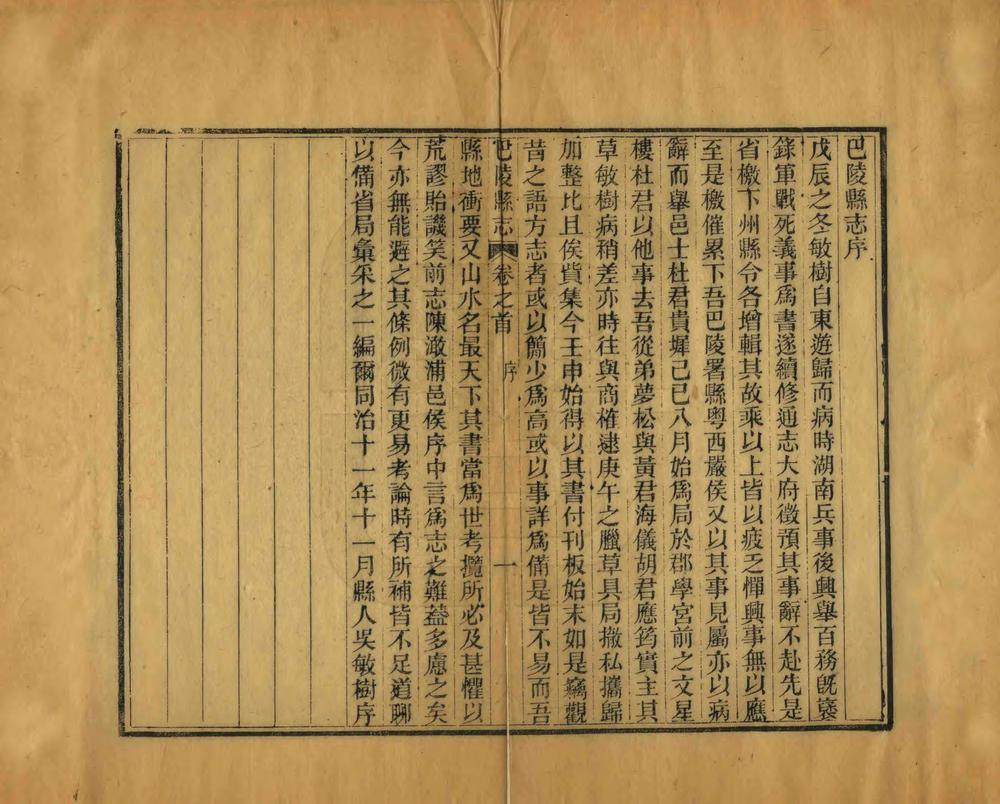 巴陵縣志序
戊辰之冬敏樹自東遊歸而病時湖南兵事後興舉百務旣褎
錄軍戰死義事爲書遂續修通志大府徵預其事辭不赴先是
省檄下州縣令各增輯其故乘以上皆以疲乏憚興事無以應
至是檄催累下吾巴陵署縣粵西嚴侯又以其事見屬亦以病
辭而舉邑士杜君貴墀己巳八月始爲局於郡學宮前之文星
樓杜君以他事去吾從弟夢松與黃君海儀胡君應筠實主其
草敏樹病稍差亦時往與商榷逮庚午之臘草具局撤私攜歸
加整比且俟貲集今壬申始得以其書付刊板始末如是竊觀
昔之語方志者或以簡少爲高或以事詳爲備是皆不易而吾
巴陵縣志 卷之首 序 一
縣地衝要又山水名最天下其書當爲世考攬所必及甚懼以
荒謬貽譏笑前志陳澉浦邑侯序中言爲志之難葢多慮之矣
今亦無能避之其條例微有更易考論時有所補皆不足道聊
以備省局彙采之一編爾同治十一年十一月縣人吳敏樹序